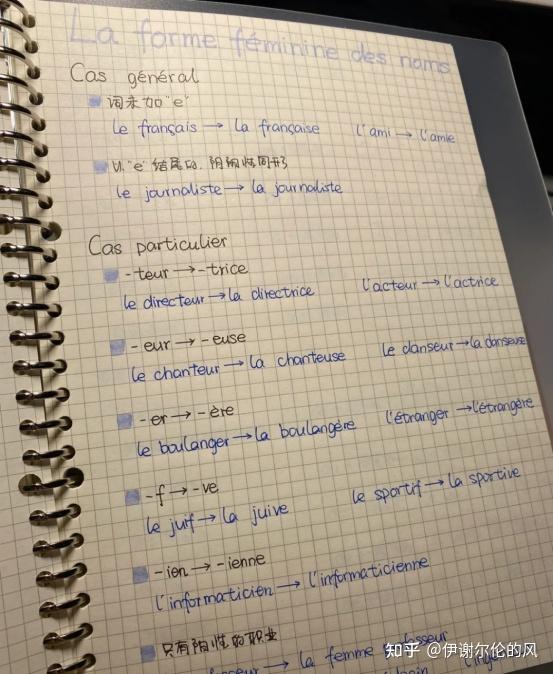 La forme féminine des noms
Cas général
词末加"e"
le français → la française l'ami → l'amie
以"e"结尾的,阴阳性同形
le journaliste → la journaliste
Cas particulier
-teur → -trice
le directeur → la directrice l'acteur → l'actrice
-eur → -euse
le chanteur → la chanteuse le danseur → la danseuse
-er → -ère
le boulanger → la boulangère l'étranger → l'étrangère
-f → -ve
le juif → la juive le sportif → la sportive
-ien → -ienne
l'informaticien → l'informaticienne
只有阳性的职业
→ la femme
知乎 @伊谢尔伦的风